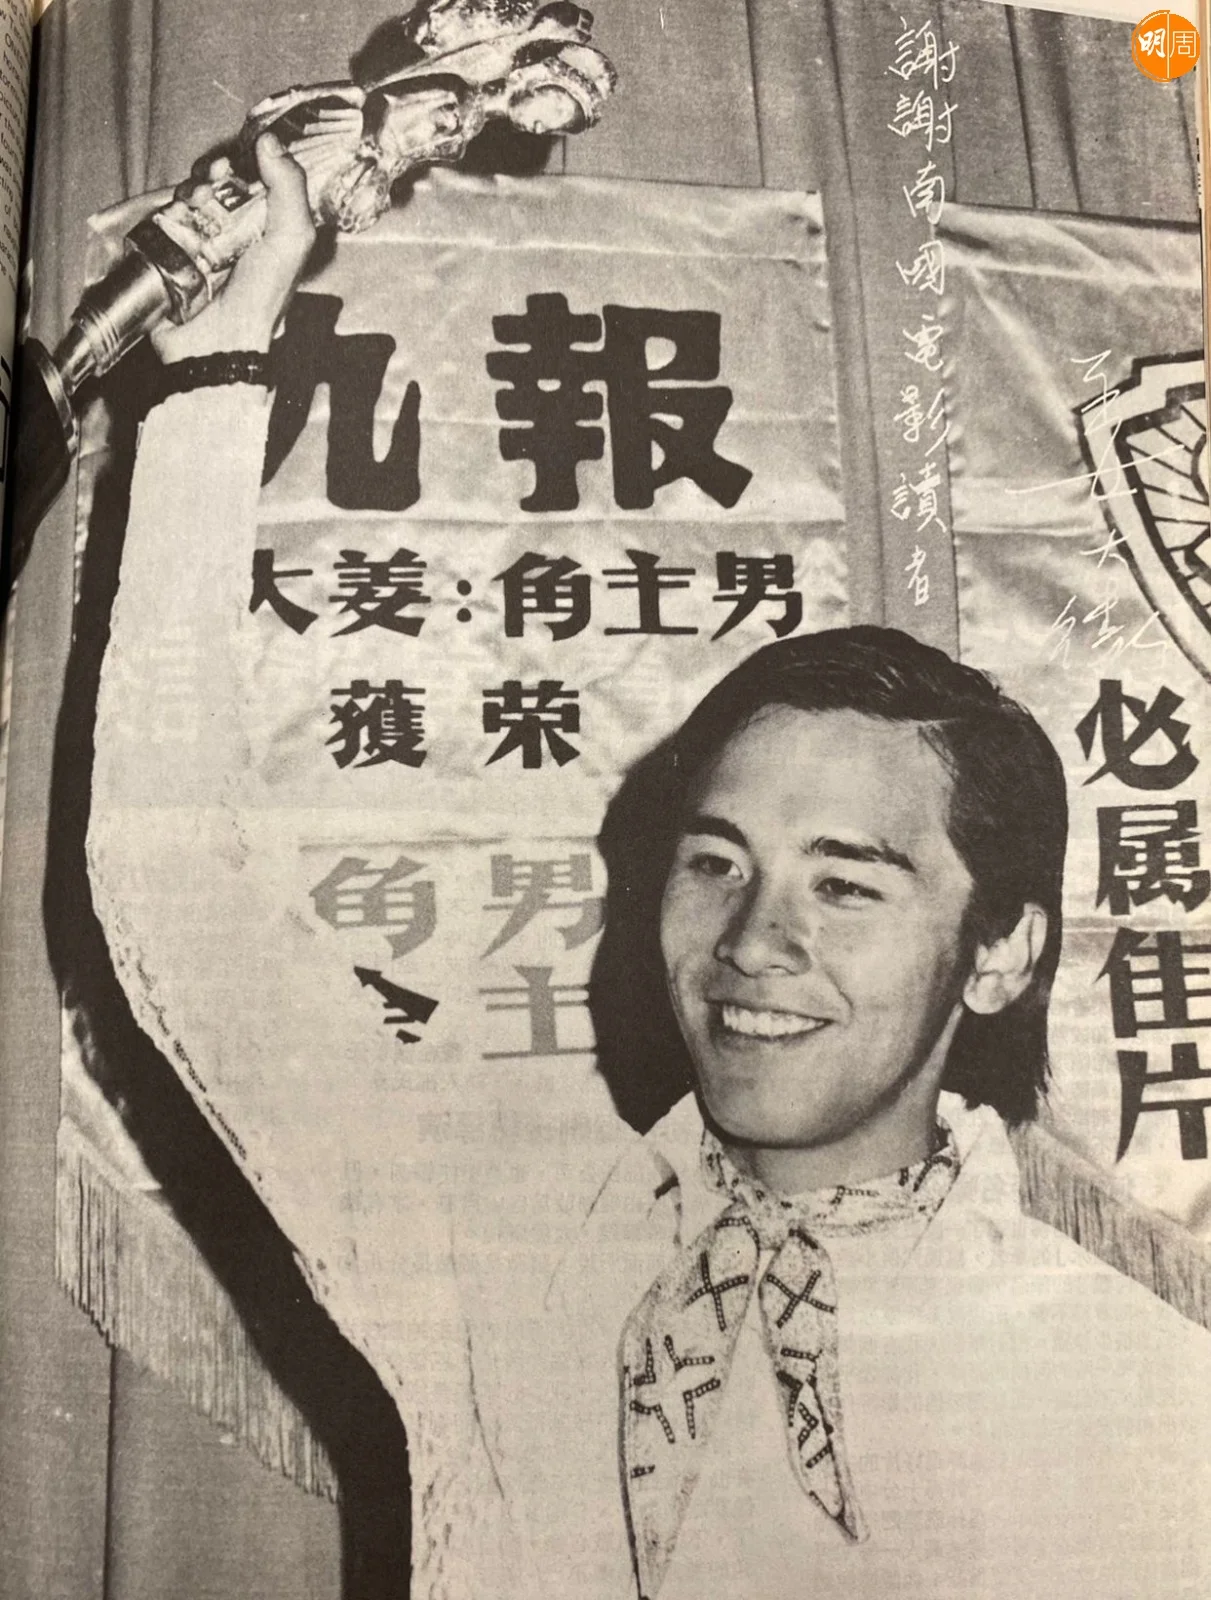 明周
謝謝南國電影讀者
姜大衛
報九
男主角:姜大
荣獲
男主
角
必属佳片